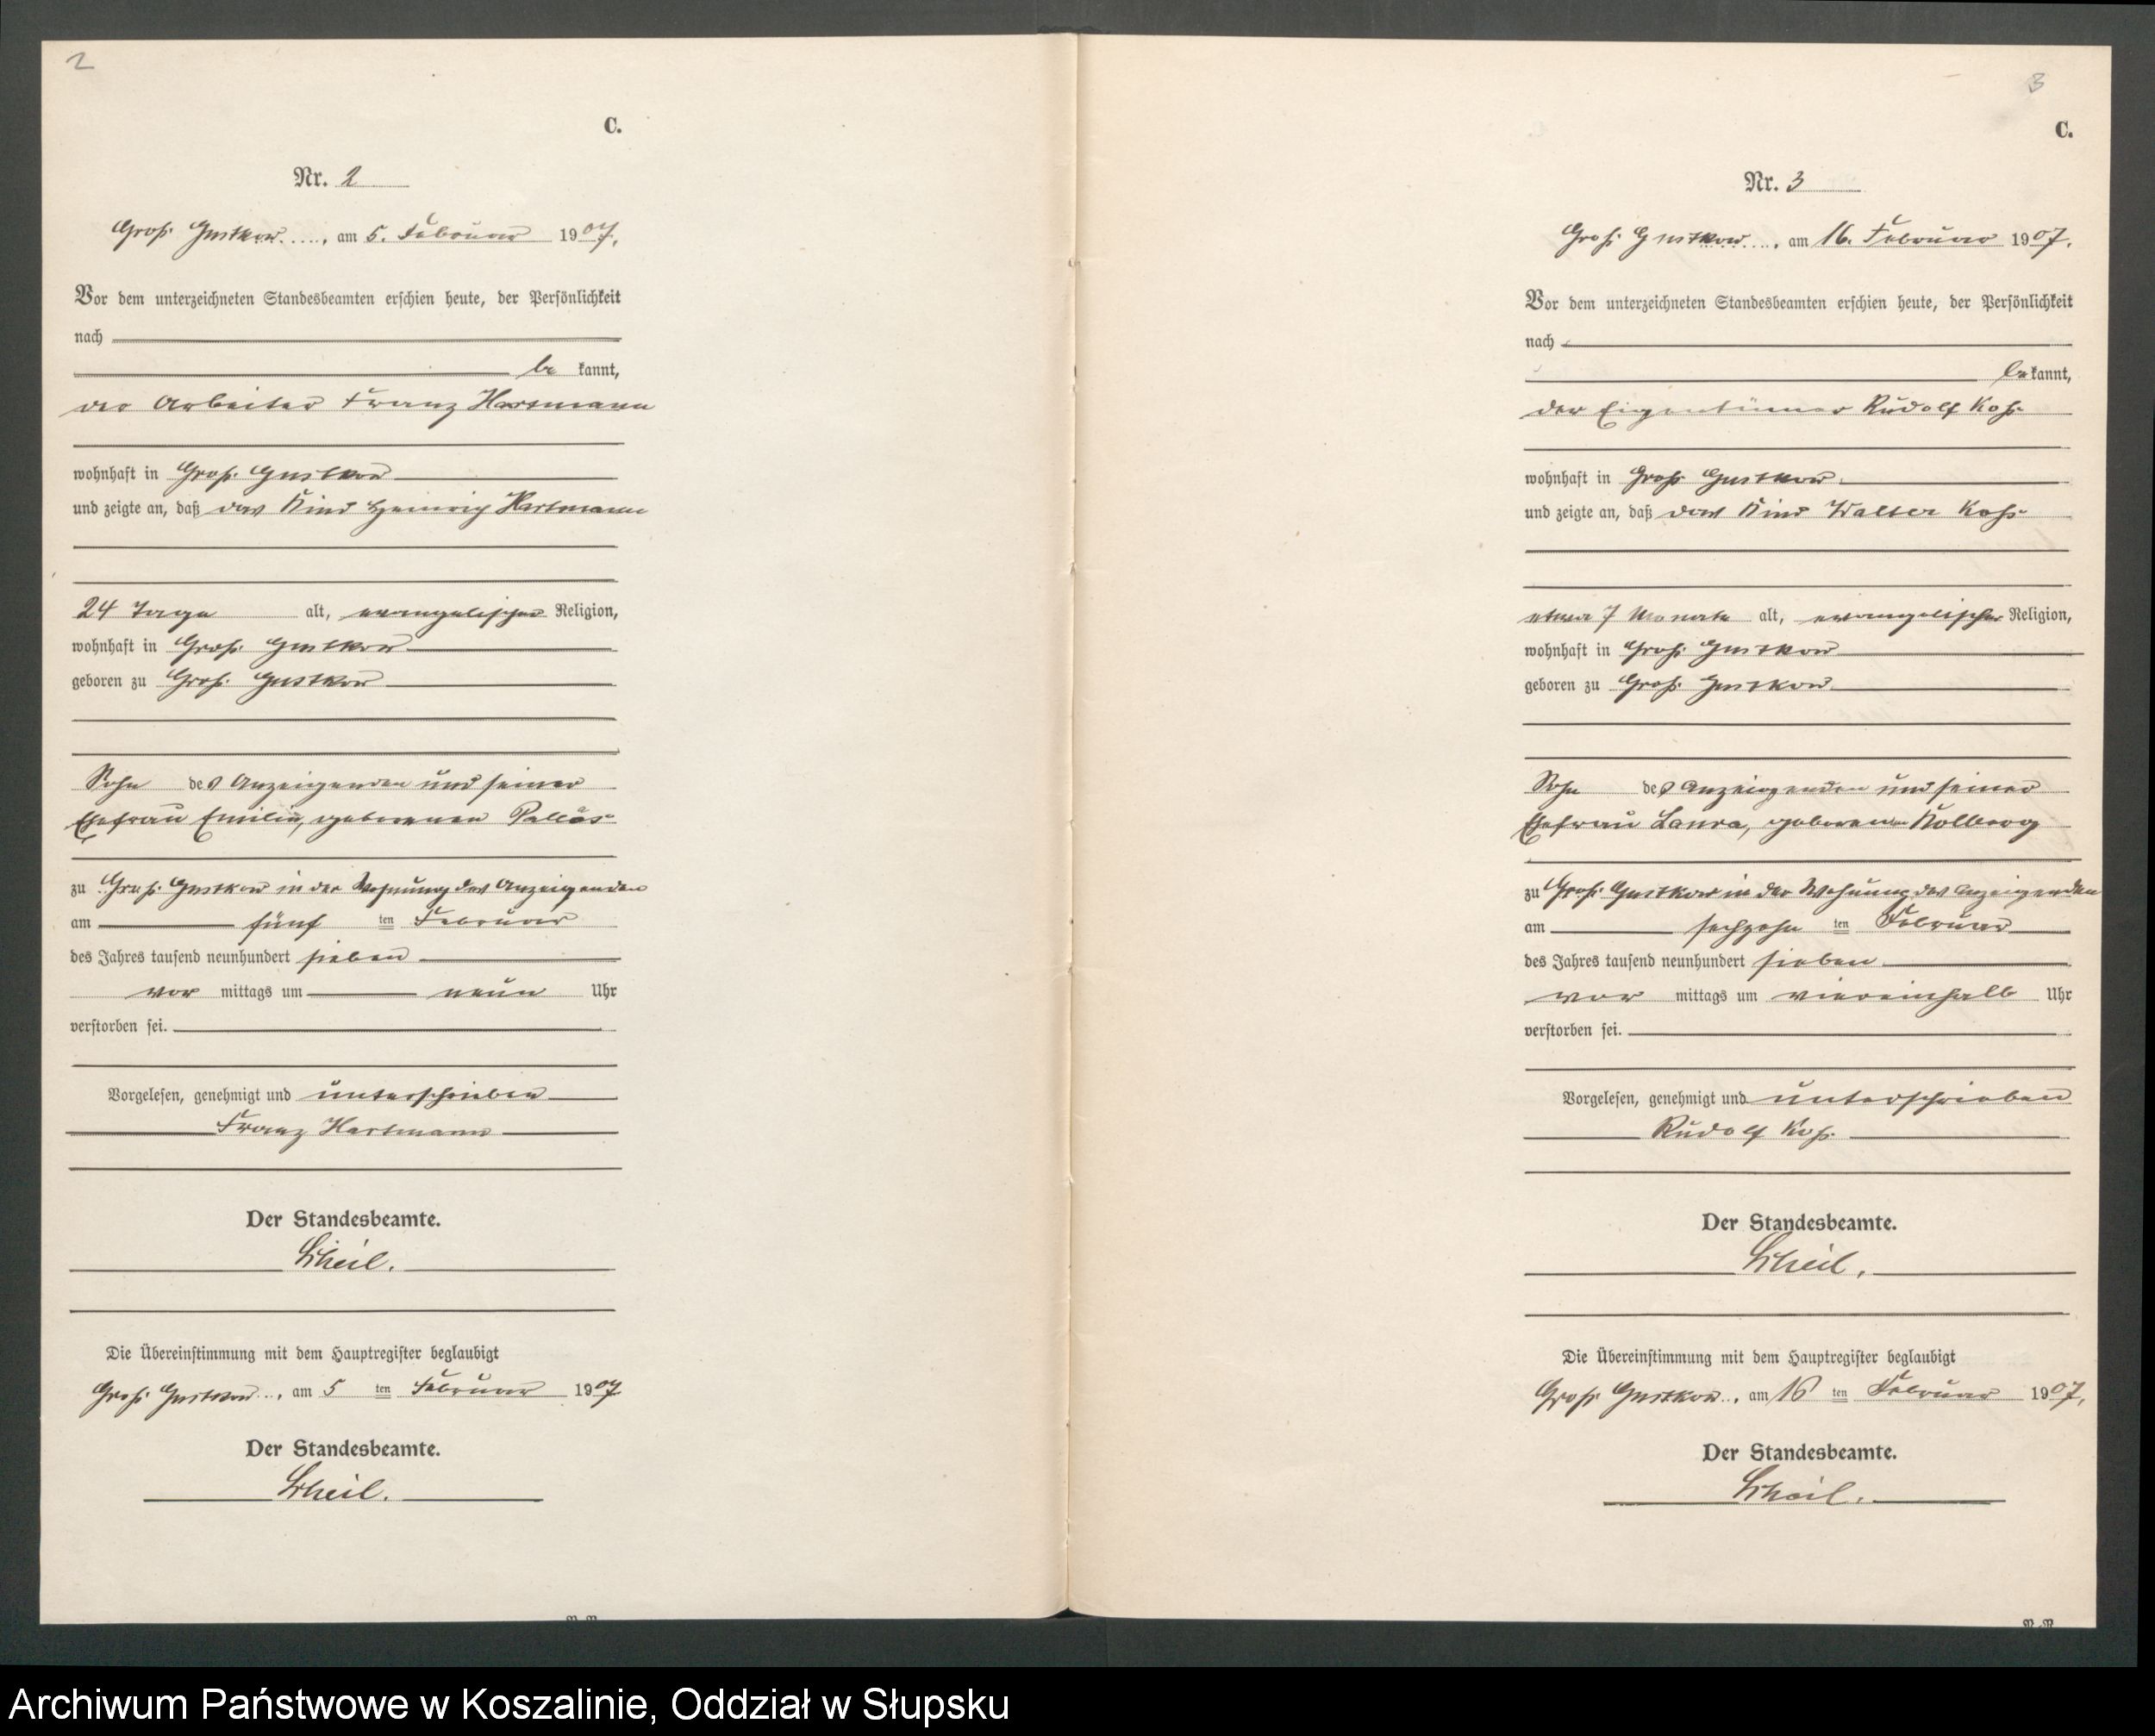 2
C.
Nr. 2
Groß Gustkow, am 5. Februar 1907.
Vor dem unterzeichneten Standesbeamten erschien heute, der Persönlichkeit
nach
be kannt,
der Arbeiter Franz Hartmann
wohnhaft in Groß Gustkow
und zeigte an, daß das Kind Heinrich Hartmann
24 Tage alt, evangelischer Religion,
wohnhaft in Groß Gustkow
geboren zu Groß Gustkow
Sohn des Anzeigenden und seiner
Ehefrau Emilie, geborenen Pallas
zu Groß Gustkow in der Wohnung des Anzeigenden
am fünf ten Februar
des Jahres tausend neunhundert sieben
vor mittags um neun Uhr
verstorben sei.
Vorgelesen, genehmigt und unterschrieben
Franz Hartmann
Der Standesbeamte.
Scheil.
Die Übereinstimmung mit dem Hauptregister beglaubigt
Groß Gustkow, am 5 ten Februar 1907
Der Standesbeamte.
Scheil.
3
C.
Nr. 3
Groß Gustkow, am 16. Februar 1907.
Vor dem unterzeichneten Standesbeamten erschien heute, der Persönlichkeit
nach
bekannt,
der Eigentümer Rudolf Koß
wohnhaft in Groß Gustkow
und zeigte an, daß das Kind Walter Koß
etwa 7 Monate alt, evangelischer Religion,
wohnhaft in Groß Gustkow
geboren zu Groß Gustkow
Sohn des Anzeigenden und seiner
Ehefrau Laura, geborenen Kolberg
zu Groß Gustkow in der Wohnung des Anzeigenden
am sechzehn ten Februar
des Jahres tausend neunhundert sieben
vor mittags um viereinhalb Uhr
verstorben sei.
Vorgelesen, genehmigt und unterschrieben
Rudolf Koß
Der Standesbeamte.
Scheil.
Die Übereinstimmung mit dem Hauptregister beglaubigt
Groß Gustkow, am 16 ten Februar 1907.
Der Standesbeamte.
Scheil.
Archiwum Państwowe w Koszalinie, Oddział w Słupsku